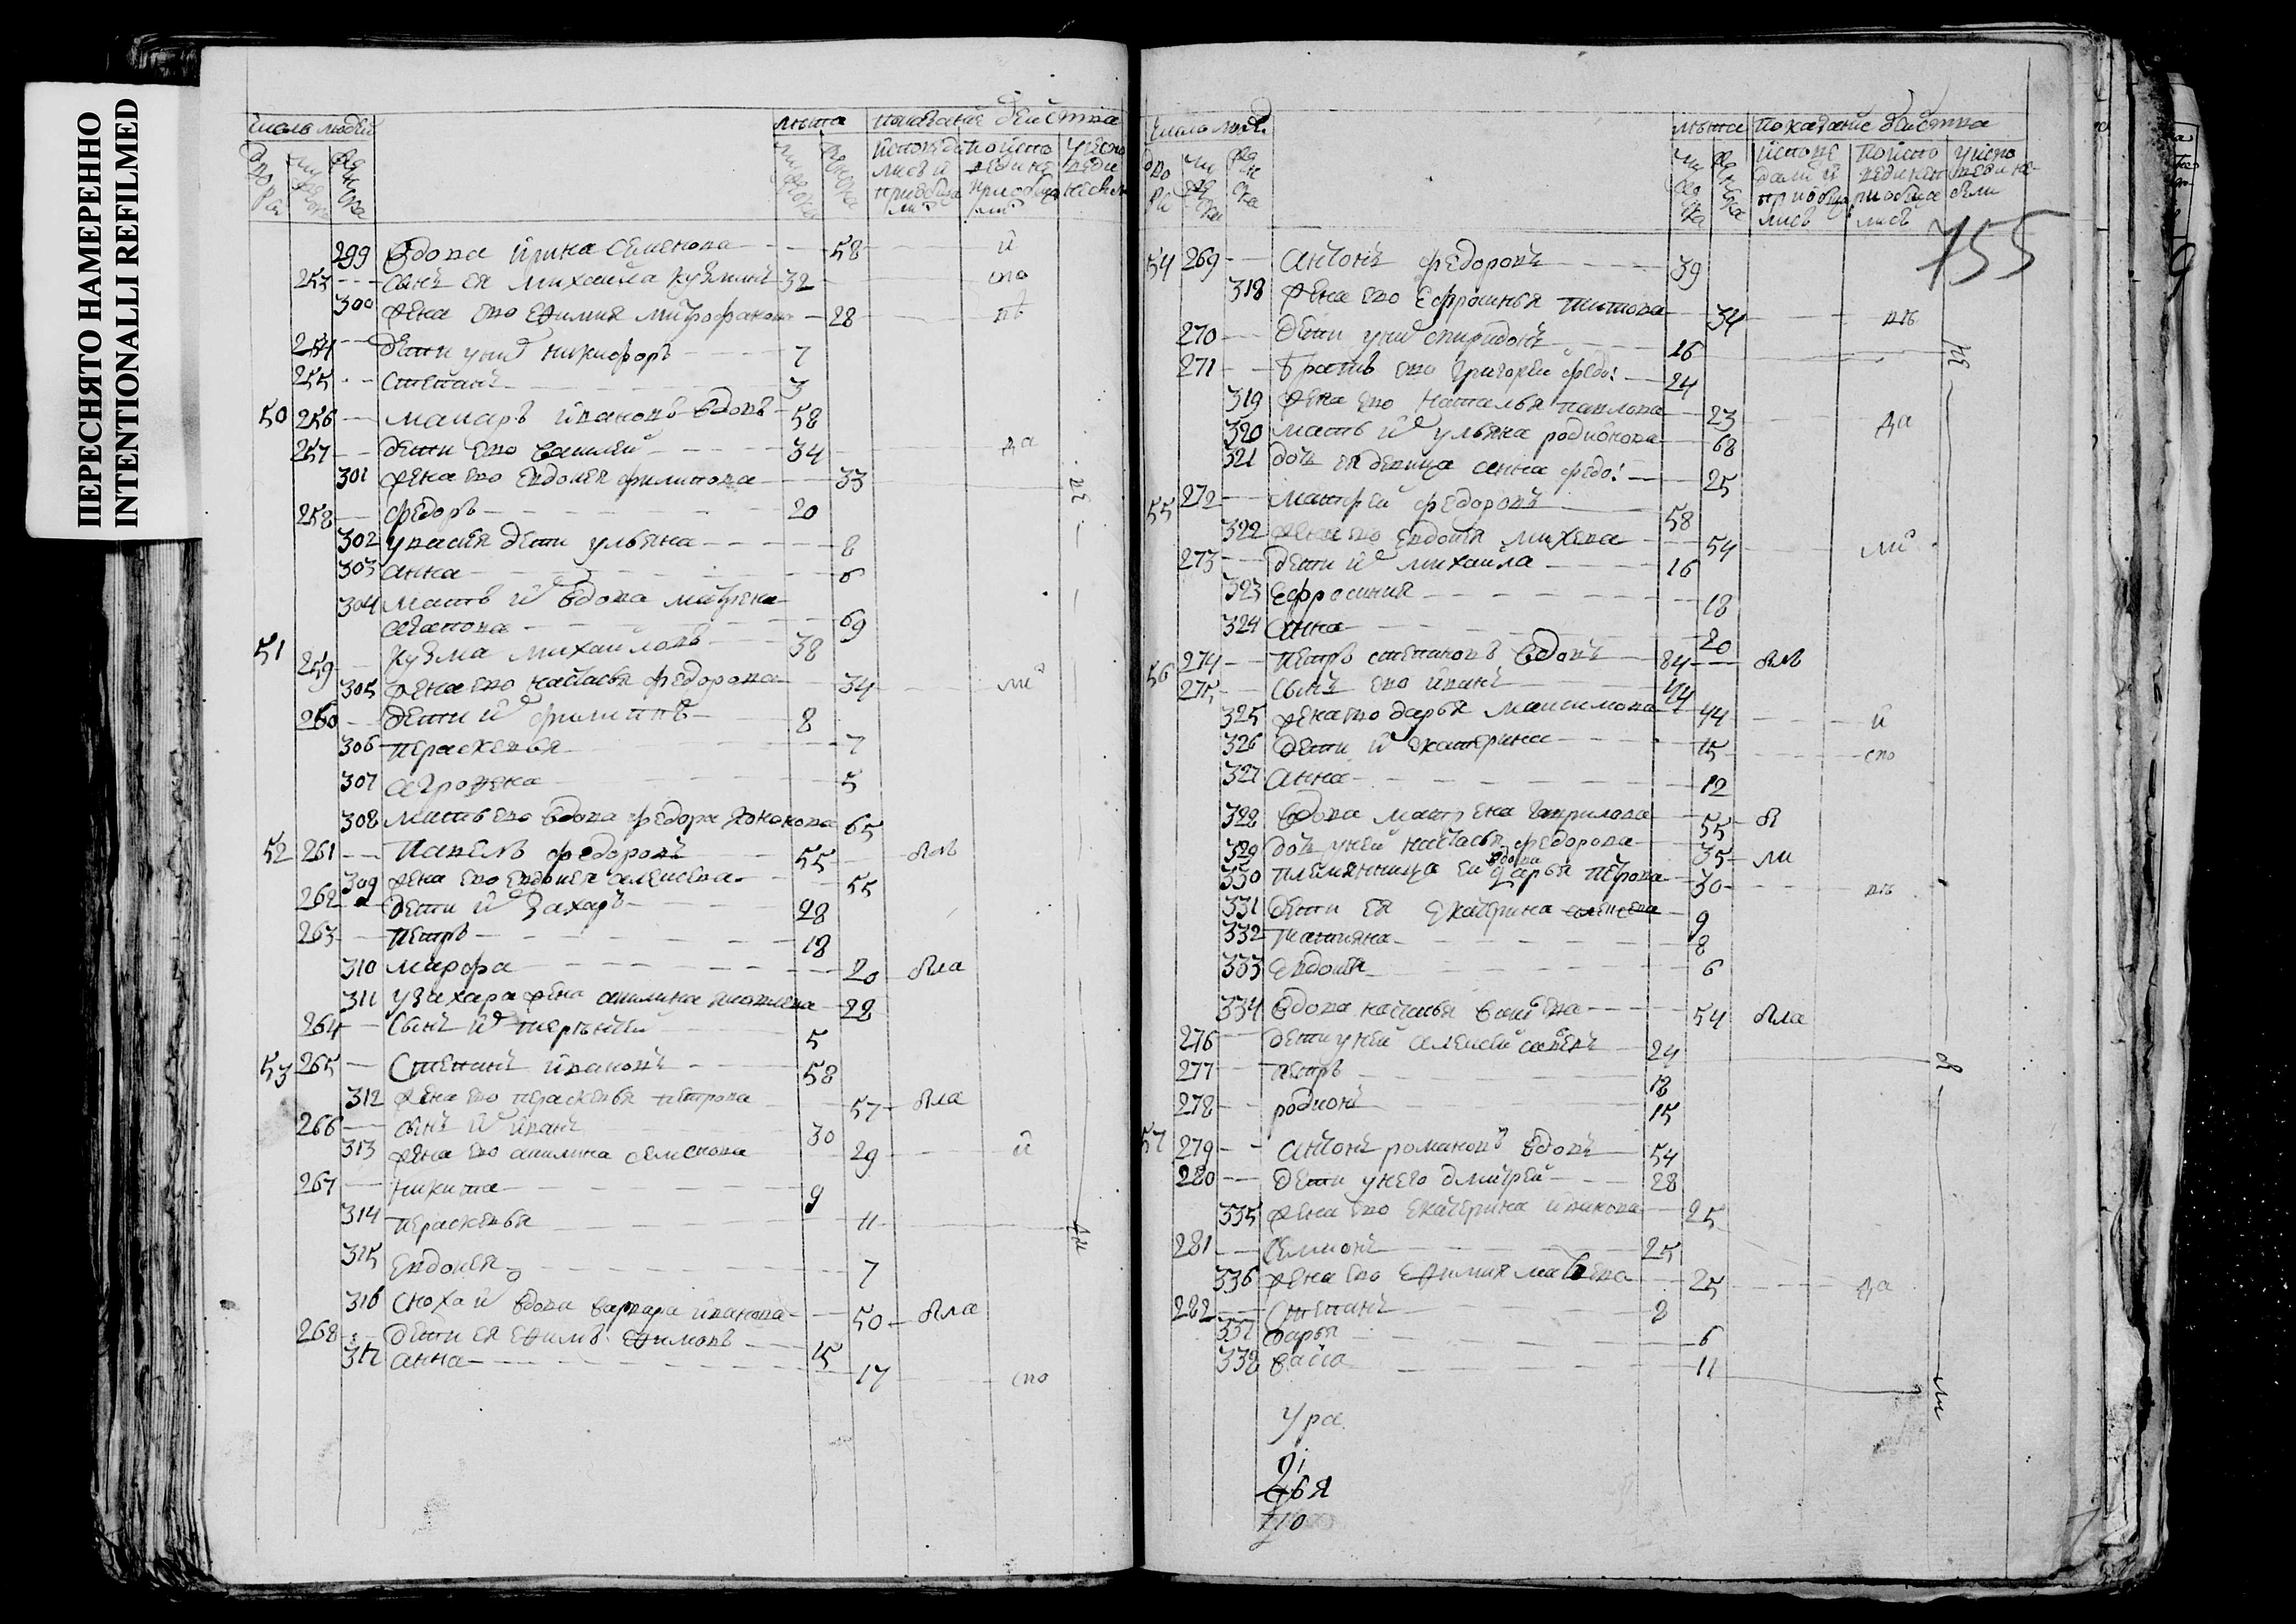 ПЕРЕСНЯТО НАМЕРЕННО
INTENTIONALLI REFILMED
число людей
лѣта показание действа
299 вдова ирина семенова 58 и
253 сынъ ея михаила кузминъ 32 спо
300 жена ево ефимия митрофанова 28 вѣ
254 дети у них никифоръ 7
255 степанъ 3
50 256 макаръ ивановъ вдовъ 58
257 дети ево василей 34 да
301 жена ево евдокея филипова 33
258 федоръ 20
302 у васия дети ульяна 8
303 анна 6
304 мать их вдова матрена
агапова 69
51 259 кузма михаиловъ 38
305 жена ево настасья федорова 34 ли
260 дети их филиппъ 8
306 парасковья 7
307 агрофена 5
308 мать ево вдова федора кононова 65
52 261 павелъ федоровъ 55 былъ
309 жена ево евдокея алексева 55
262 дети их захаръ 28
263 петръ 18
310 марфа 20 была
311 у захара жена акилина 22
264 сынъ их терентей 5
53 265 степанъ ивановъ 58
312 жена ево парасковья петрова 57 была
266 сынъ их иванъ 30
313 жена ево акилина семенова 29 и
267 никита 9
314 парасковья 11
315 евдокея 7
316 сноха их вдова варвара иванова 50 была
268 дети ея ефимъ ефимовъ 15
317 анна 17 спо
число людей
лѣта показание действа
755
54 269 антонъ федоровъ 39
318 жена ево ефросинья титова 34 вѣ
270 дети у них спиридонъ 16
271 братъ ево григорей федо: 24
319 жена ево наталья павлова 23 да
320 мать их ульяна родионова 68
321 дочь ея девица анна федо: 25
55 272 матфей федоровъ 58
322 жена ево евдокия михеева 54 ли
273 дети их михаила 16
323 ефросиния 18
324 анна 20
56 274 петръ степановъ вдовъ 84 былъ
275 сынъ ево иванъ 44
325 жена ево дарья максимова 44 и
326 дети их екатерина 15 спо
327 анна 12
328 вдова матрена гаврилова 55 бы
329 дочь у ней настасья федорова 35 ли
330 племянница ей вдова дарья петрова 30 вѣ
331 дети ея екатерина алексева 9
332 татияна 8
333 евдокия 6
334 вдова настасья 54 была
276 дети у ней алексей 24
277 петръ 18
278 родионъ 15
57 279 антонъ романовъ вдовъ 54
280 дети у него дмитрей 28
335 жена ево екатерина иванова 25
281 семионъ 25
336 жена ево ефимия матвеева 25 да
282 степанъ 8
337 дарья 6
338 васса 11 ли